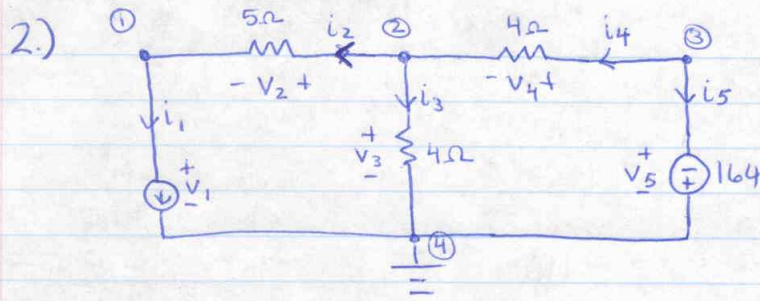 2.)
① 5Ω i₂ ② 4Ω i₄ ③
- V₂ + - V₄ +
i₁ i₃ i₅
+ V₁ - + V₃ - 4Ω V₅ + - - + 164
④